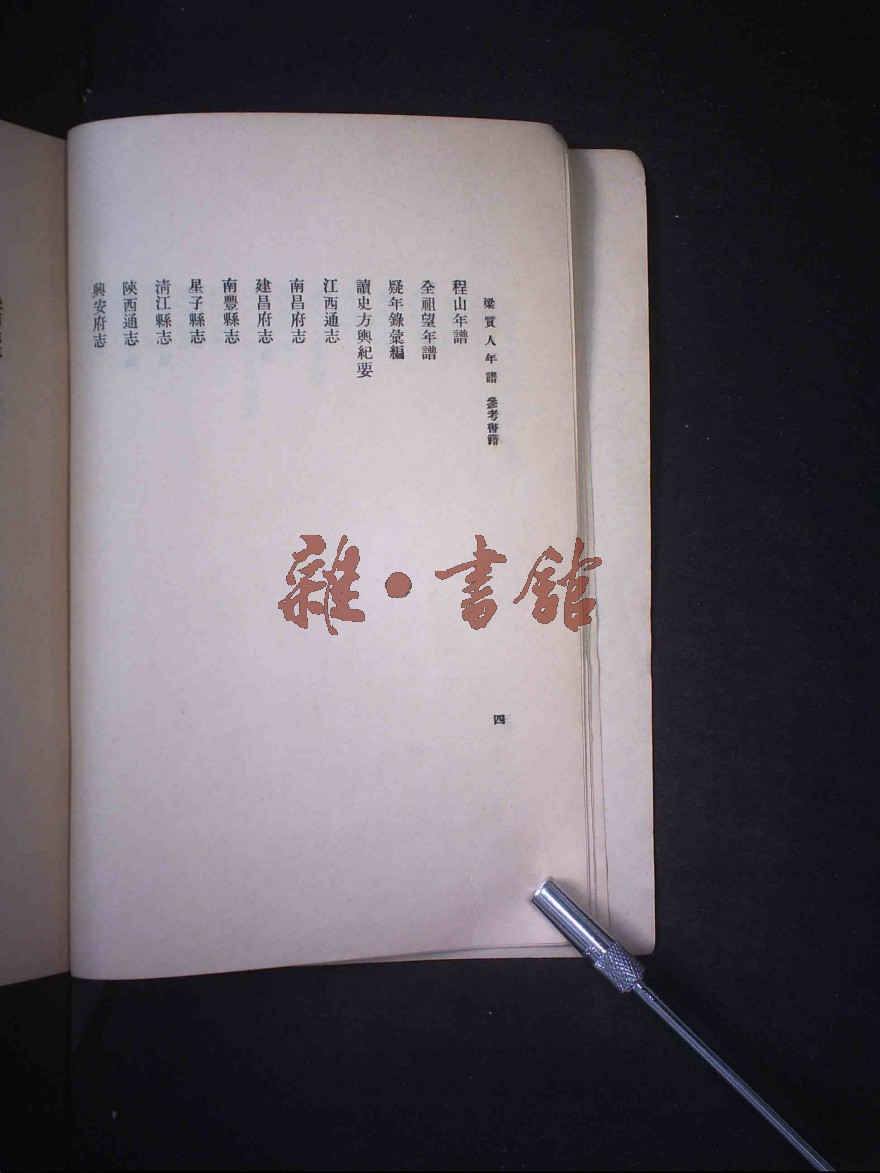 梁質人年譜 參考書籍
四
程山年譜
全祖望年譜
疑年錄彙編
讀史方輿紀要
江西通志
南昌府志
建昌府志
南豐縣志
星子縣志
清江縣志
陝西通志
興安府志
雜·書館